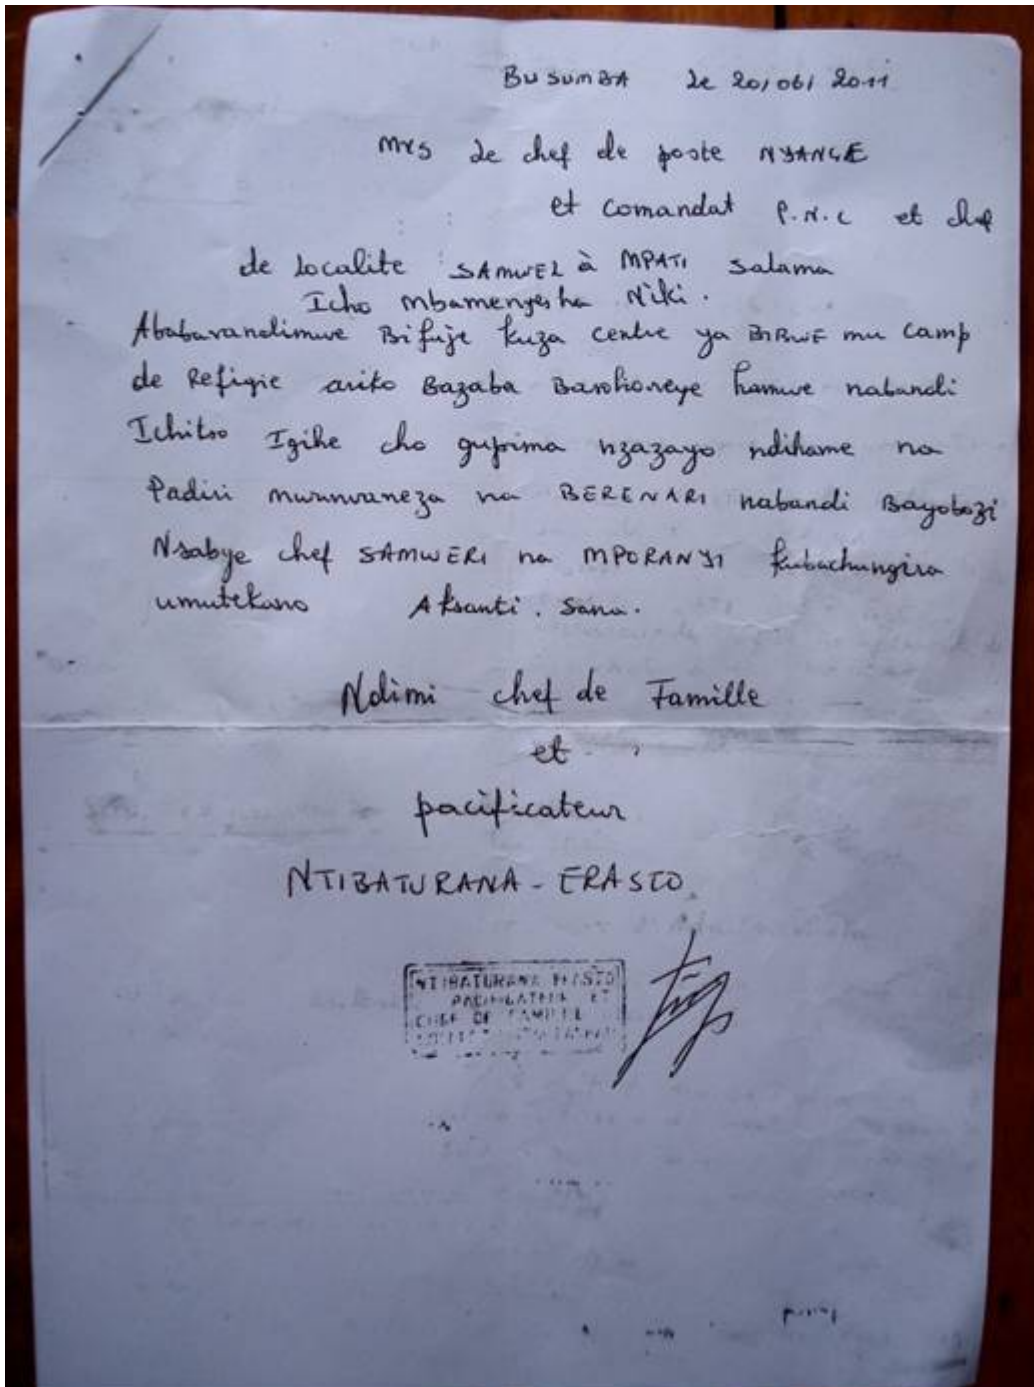 BUSUMBA le 20/06/2011
Mrs le chef de poste NYANGE
et comandat P.N.C et chef
de Localite SAMWEL à MPATI Salama
Icho Mbamenyesha Niki.
Ababavandimwe Bifuje kuza centre ya BIBWE mu camp
de Refigie ariko Bazaba Barohoneye hamwe nabandi
Ichitso Igihe cho gupima nzazayo ndihame na
Padiri munvaneza na BERENARI nabandi Bayobozi
Nsabye chef SAMWERI na MPORANYI kubachungira
umutekano Aksanti. Sana.
Ndimi chef de Famille
et
pacificateur
NTIBATURANA - ERASTO
NTIBATURANA ERASTO
PACIFICATEUR ET
CHEF DE FAMILLE